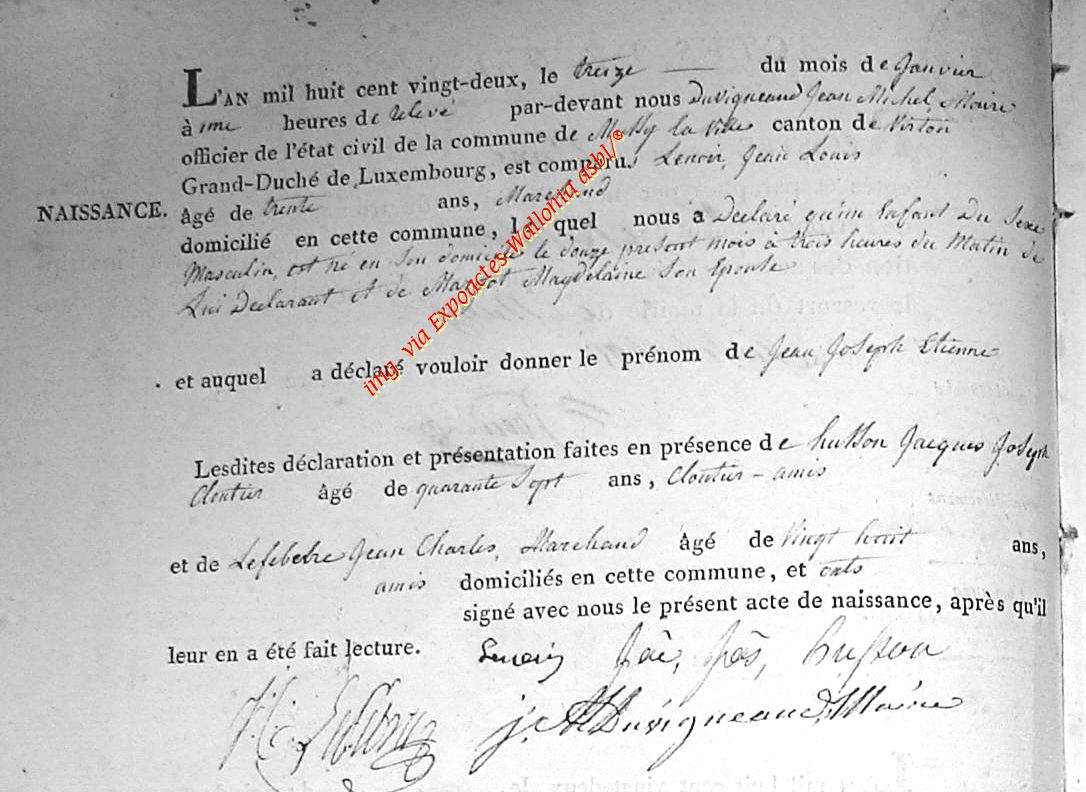 L'AN mil huit cent vingt-deux, le treize du mois de Janvier
à une heures de relevé par-devant nous Duvigneaud Jean Michel, Maire
officier de l'état civil de la commune de Mussy la Ville canton de Virton
Grand-Duché de Luxembourg, est comparu. Lenoir, Jean Louis
NAISSANCE. âgé de trente ans, Marchand
domicilié en cette commune, lequel nous a Declaré qu'un Enfant Du Sexe
Masculin, est né en Son domicile le douze present mois à trois heures du Matin de
Lui Declarant et de Magdelaine Son Epouse
et auquel a déclaré vouloir donner le prénom de Jean Joseph Etienne
Lesdites déclaration et présentation faites en présence de husson Jacques Joseph
Cloutier âgé de quarante Sept ans, Cloutier - amis
et de Lefebvre Jean Charles, Marchand âgé de Vingt huit ans,
amis domiciliés en cette commune, et onts
signé avec nous le présent acte de naissance, après qu'il
leur en a été fait lecture.
Lenoir Jac, Jos, husson
J. M Duvigneaud, Maire
img. via Expoactes-Wallonia asbl/©